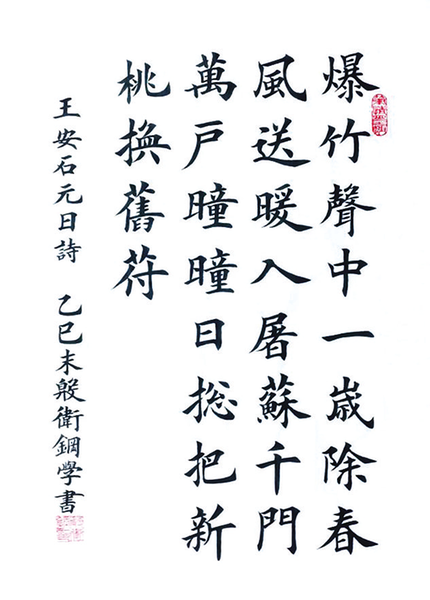 爆竹聲中一歲除春
風送暖入屠蘇千門
萬戶曈曈日捴把新
桃換舊符
王安石元日詩 乙巳末殷衛鋼学書